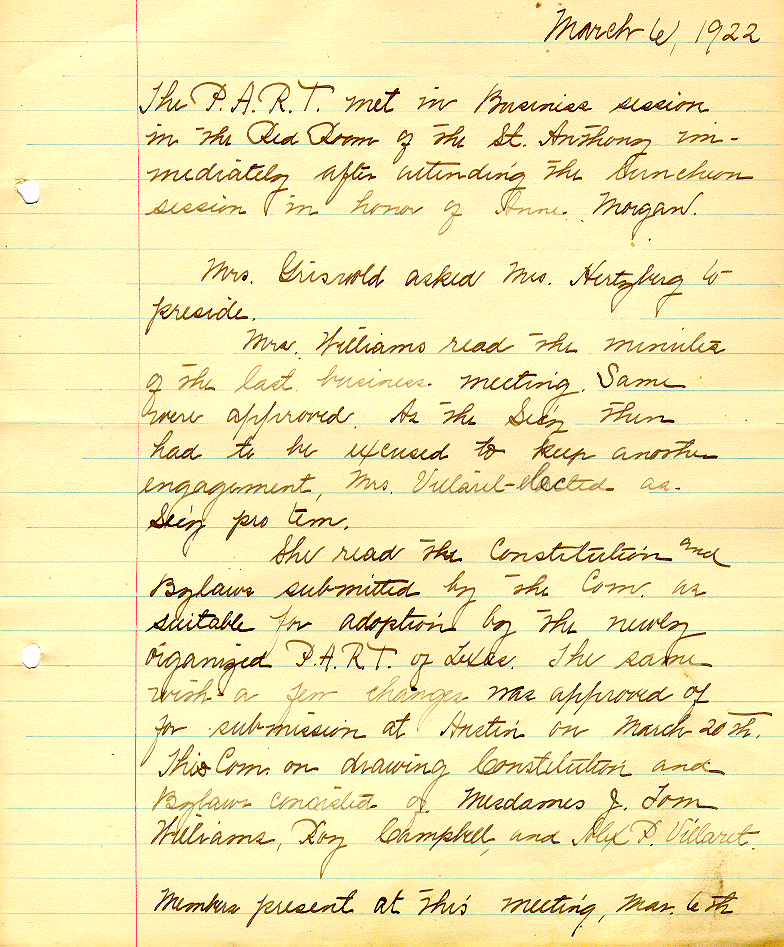 March 6, 1922
The P.A.R.T. met in Business session
in the Red Room of the St. Anthony im-
mediately after attending the Luncheon
session in honor of Anne Morgan.
Mrs. Griswold asked Mrs. Hertzberg to
preside.
Mrs. Williams read the minutes
of the last business meeting. Same
were approved. As the Sec'y then
had to be excused to keep another
engagement, Mrs. Villaret elected as
Sec'y pro tem.
She read the Constitution and
Bylaws submitted by the Com. as
suitable for adoption by the newly
organized P.A.R.T. of Texas. The same
with a few changes was approved of
for submission at Austin on March 20th.
This Com. on drawing Constitution and
Bylaws consisted of Mesdames J. Tom
Williams, Roy Campbell, and Alex P. Villaret.
Members present at this meeting, Mar. 6th